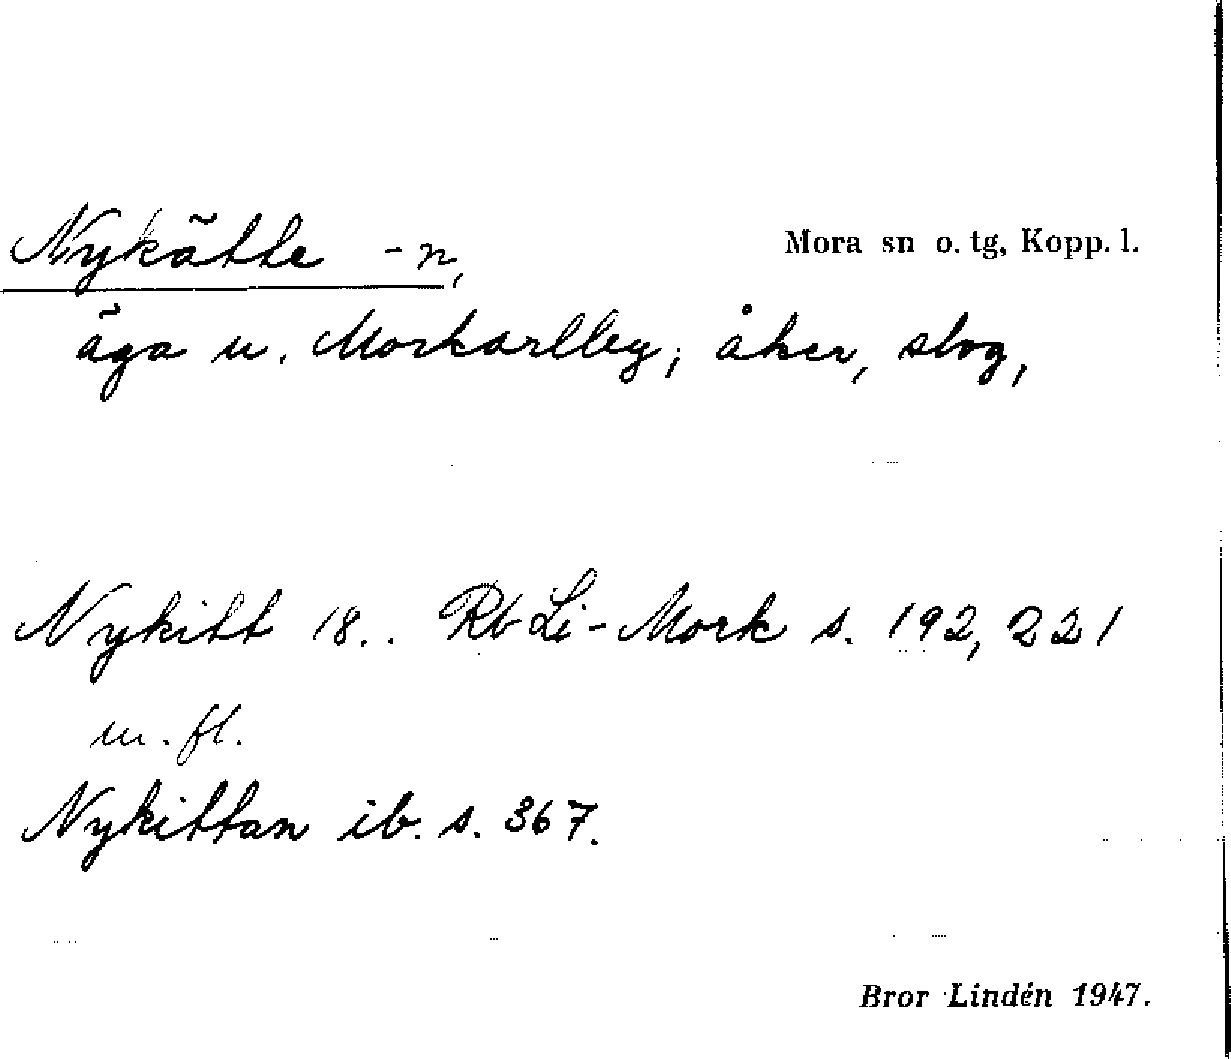 Nykätte -n, Mora sn o. tg, Kopp. l.
äga u. Morkarlby; åker, slog,
Nykitt 18.. Rb Li-Mork s. 192, 221
m. fl.
Nykittan ib. s. 367.
Bror Lindén 1947.